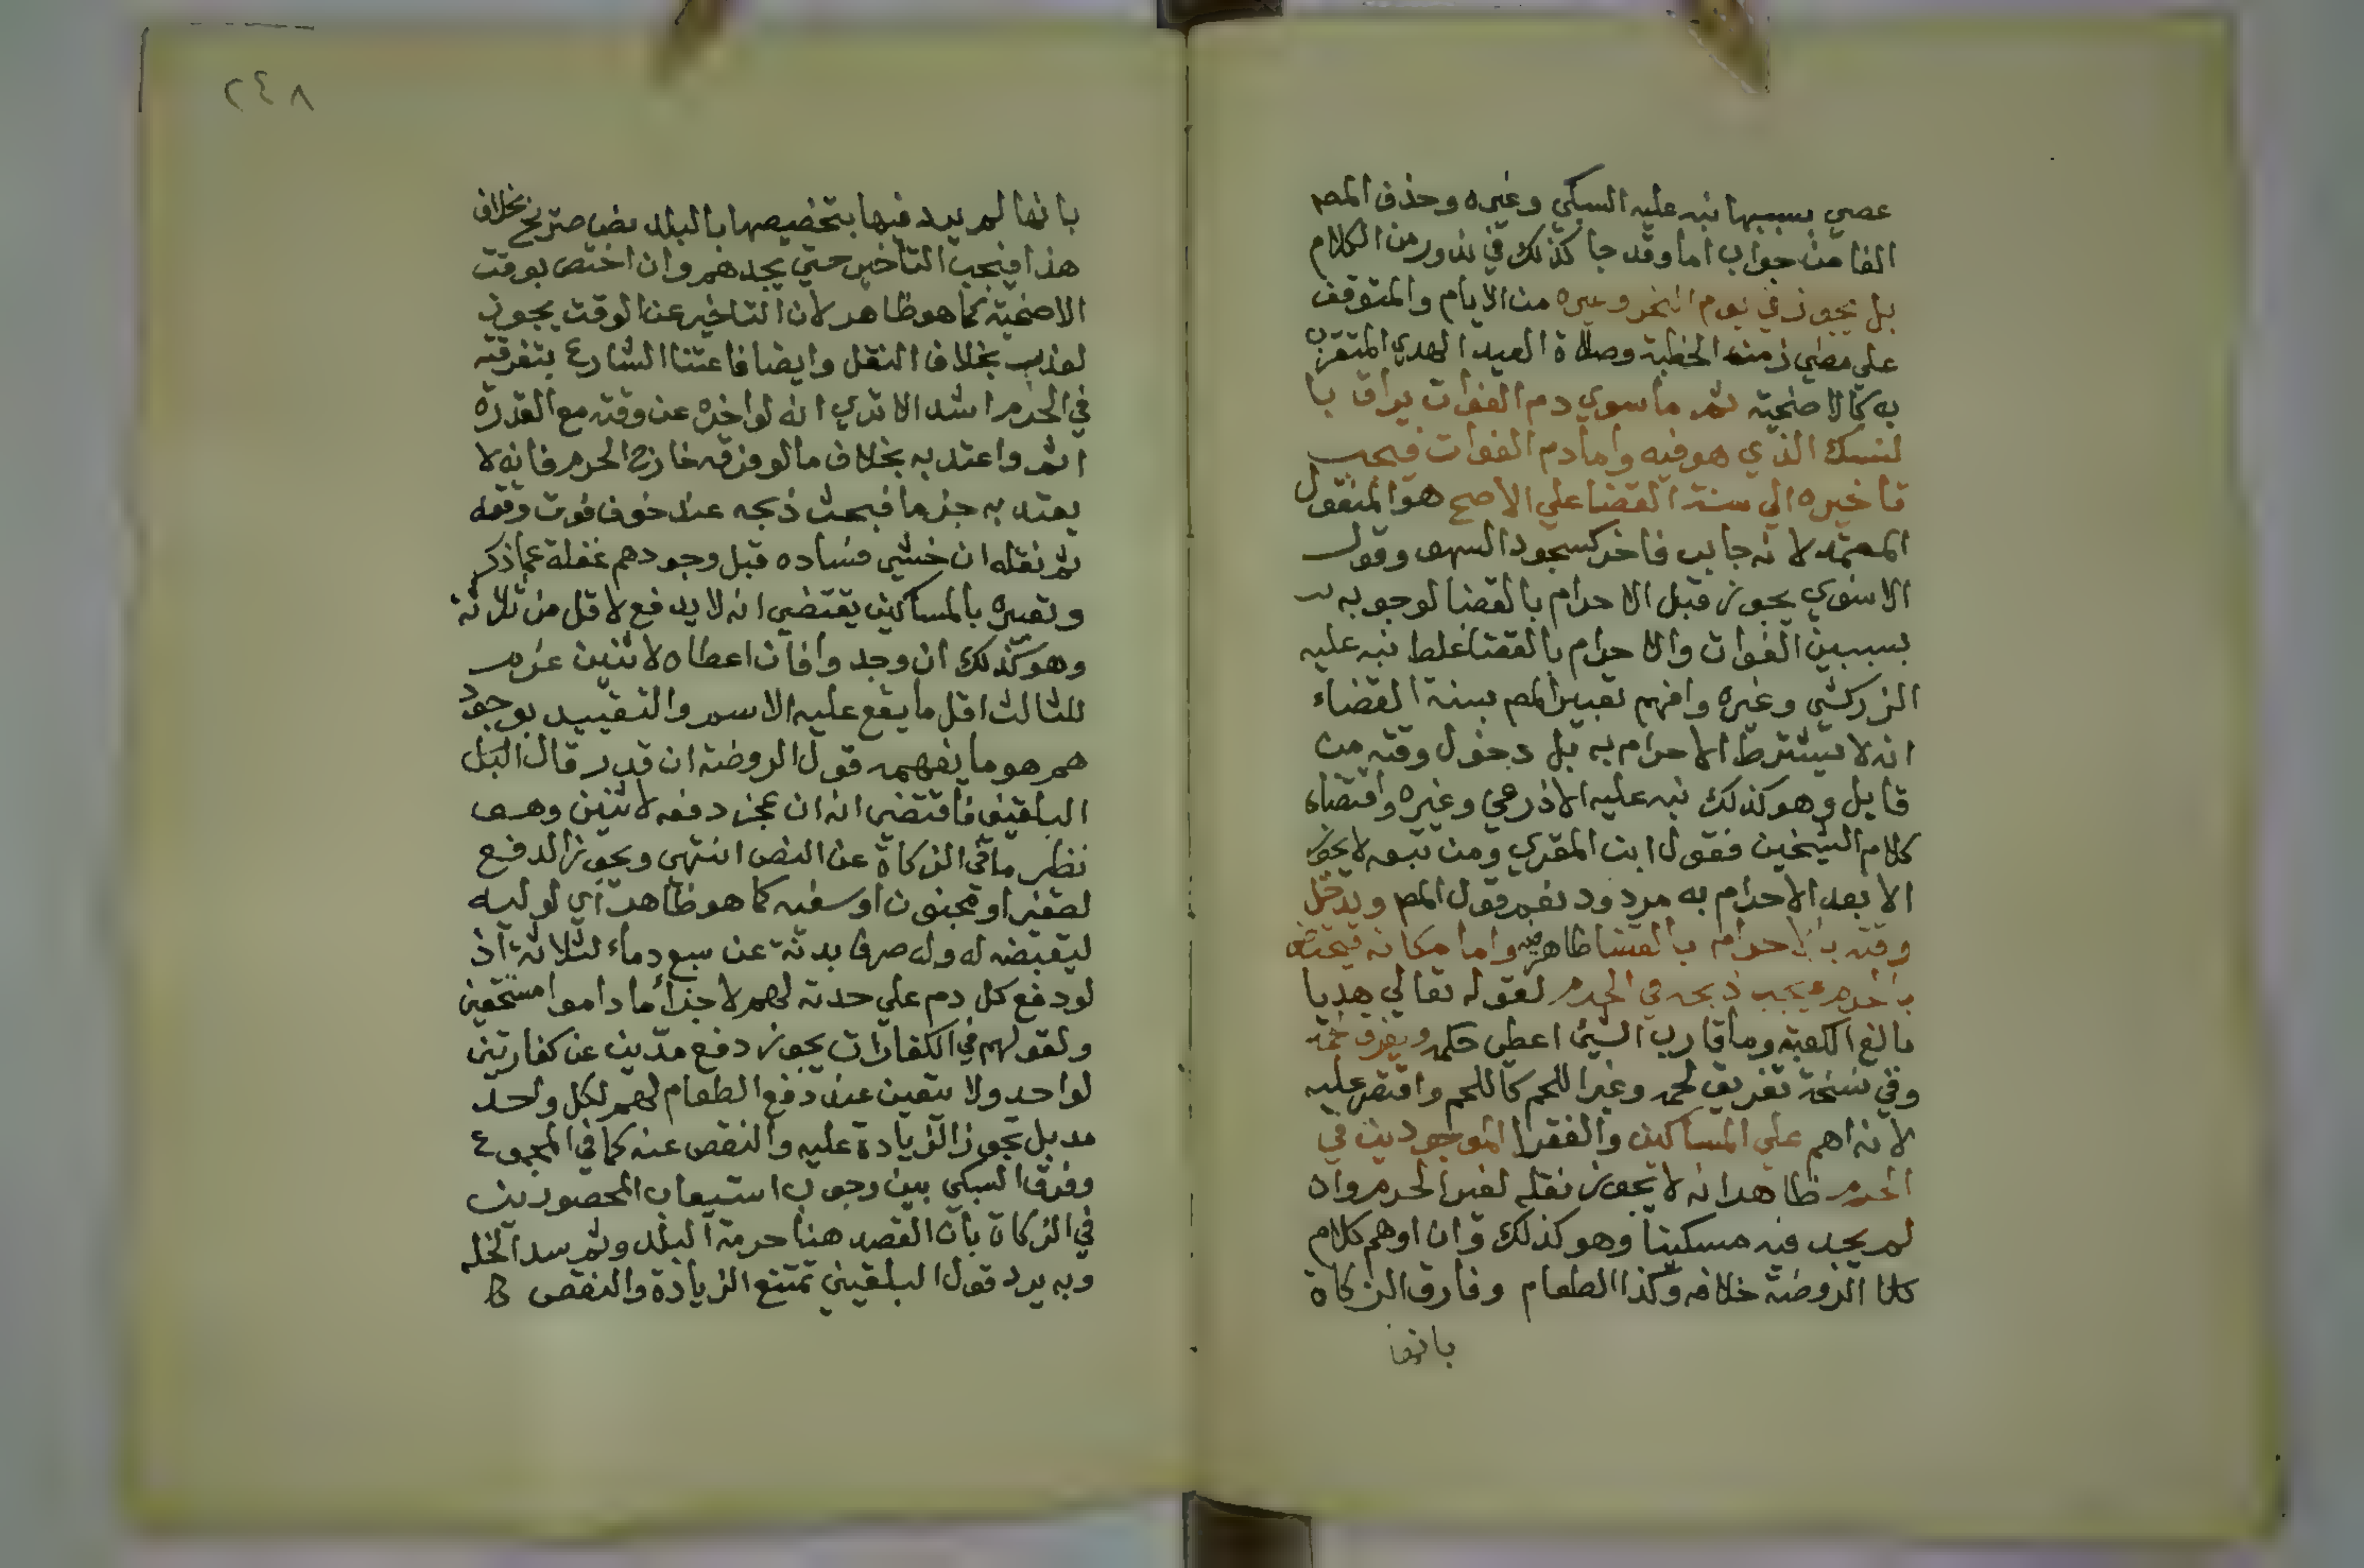 عصي بسببها نبه عليه السبكي وغيره وحذف المصم
الفا من جواب اما وقد جا كذلك في ندور من الكلام
بل يجوز في يوم النحر وغيره من الايام والمتوقف
علي مضي زمنه الخطبة وصلاة العيد الهدي المتقرب
به كالاضحية ثم ما سوي دم الفوات يراق با
لنسك الذي هو فيه واما دم الفوات فيجب
تاخيره الي سنة القضا علي الاصح هو المنقول
المعتمد لانه جابر فاخر كسجود السهو وقول
الاسنوي يجوز قبل الاحرام بالقضا لوجوبه
بسببين الفوات والاحرام بالقضا غلط نبه عليه
الزركشي وغيره وافهم تعبير المصم بسنة القضاء
انه لا يشترط الاحرام به بل دخول وقته من
قابل وهو كذلك نبه عليه الاذرعي وغيره واقتضاه
كلام الشيخين فقول ابن المقري ومن تبعه لا يجوز
الا بعد الاحرام به مردود نعم قول المصم ويدخل
وقته بالاحرام بالقضا ظاهر فيه واما مكانه فيختص
بالحرم فيجب ذبحه في الحرم لقوله تعالي هديا
بالغ الكعبة وما قارب الشيئ اعطي حكمه ويفرق لحمه
وفي نسخة تفريق لحمه وغير اللحم كاللحم واقتصر عليه
لانه اهم علي المساكين والفقرا الموجودين في
الحرم ظاهر انه لا يجوز نقله لغير الحرم وان
لم يجد فيه مسكينا وهو كذلك وان اوهم كلام
كلا الروضة خلافه وكذا الطعام وفارق الزكاة
بانها
٢٤٨
بانها لم يرد فيها بتخصيصها بالبلد نص صريح بخلاف
هذا فيجب التاخير حتي يجدهم وان اختص بوقت
الاضحية كما هو ظاهر لان التاخير عن الوقت يجوز
لعذر بخلاف النقل وايضا فاعتنا الشارع بتفرقته
في الحرم اشد الا تري انه لو اخره عن وقته مع القدرة
اثم واعتد به بخلاف ما لو فرقه خارج الحرم فانه لا
يعتد به جزما فبحث ذبحه عند خوف فوت وقته
ثم نقله ان خشي فساده قبل وجودهم غفلة عما ذكر
وتعبيره بالمساكين يقتضي انه لا يدفع لاقل من ثلاثة
وهو كذلك ان وجدوا فان اعطاه لاثنين غرم
للثالث اقل ما يقع عليه الاسم والتقييد بوجود
هم هو ما يفهمه قول الروضة ان قدر قال البل
البلقيني فاقتضي انه ان عجز دفعه لاثنين وهو
نظير ما في الزكاة عن النص انتهي ويجوز الدفع
لصغير او مجنون او سفيه كما هو ظاهر اي لوليه
ليقبضه له وله صرف بدنة عن سبع دماء لثلاثة اذ
لو دفع كل دم علي حدته لهم لاجزا ما داموا مستحقين
ولقولهم في الكفارات يجوز دفع مدين عن كفارتين
لواحد ولا يتعين عند دفع الطعام لهم لكل واحد
مد بل تجوز الزيادة عليه والنقص عنه كما في المجموع
وفرق السبكي بين وجوب استيعاب المحصورين
في الزكاة بان القصد هنا حرمة البلد وثم سد الخله
وبه يرد قول البلقيني تمتنع الزيادة والنقص كا